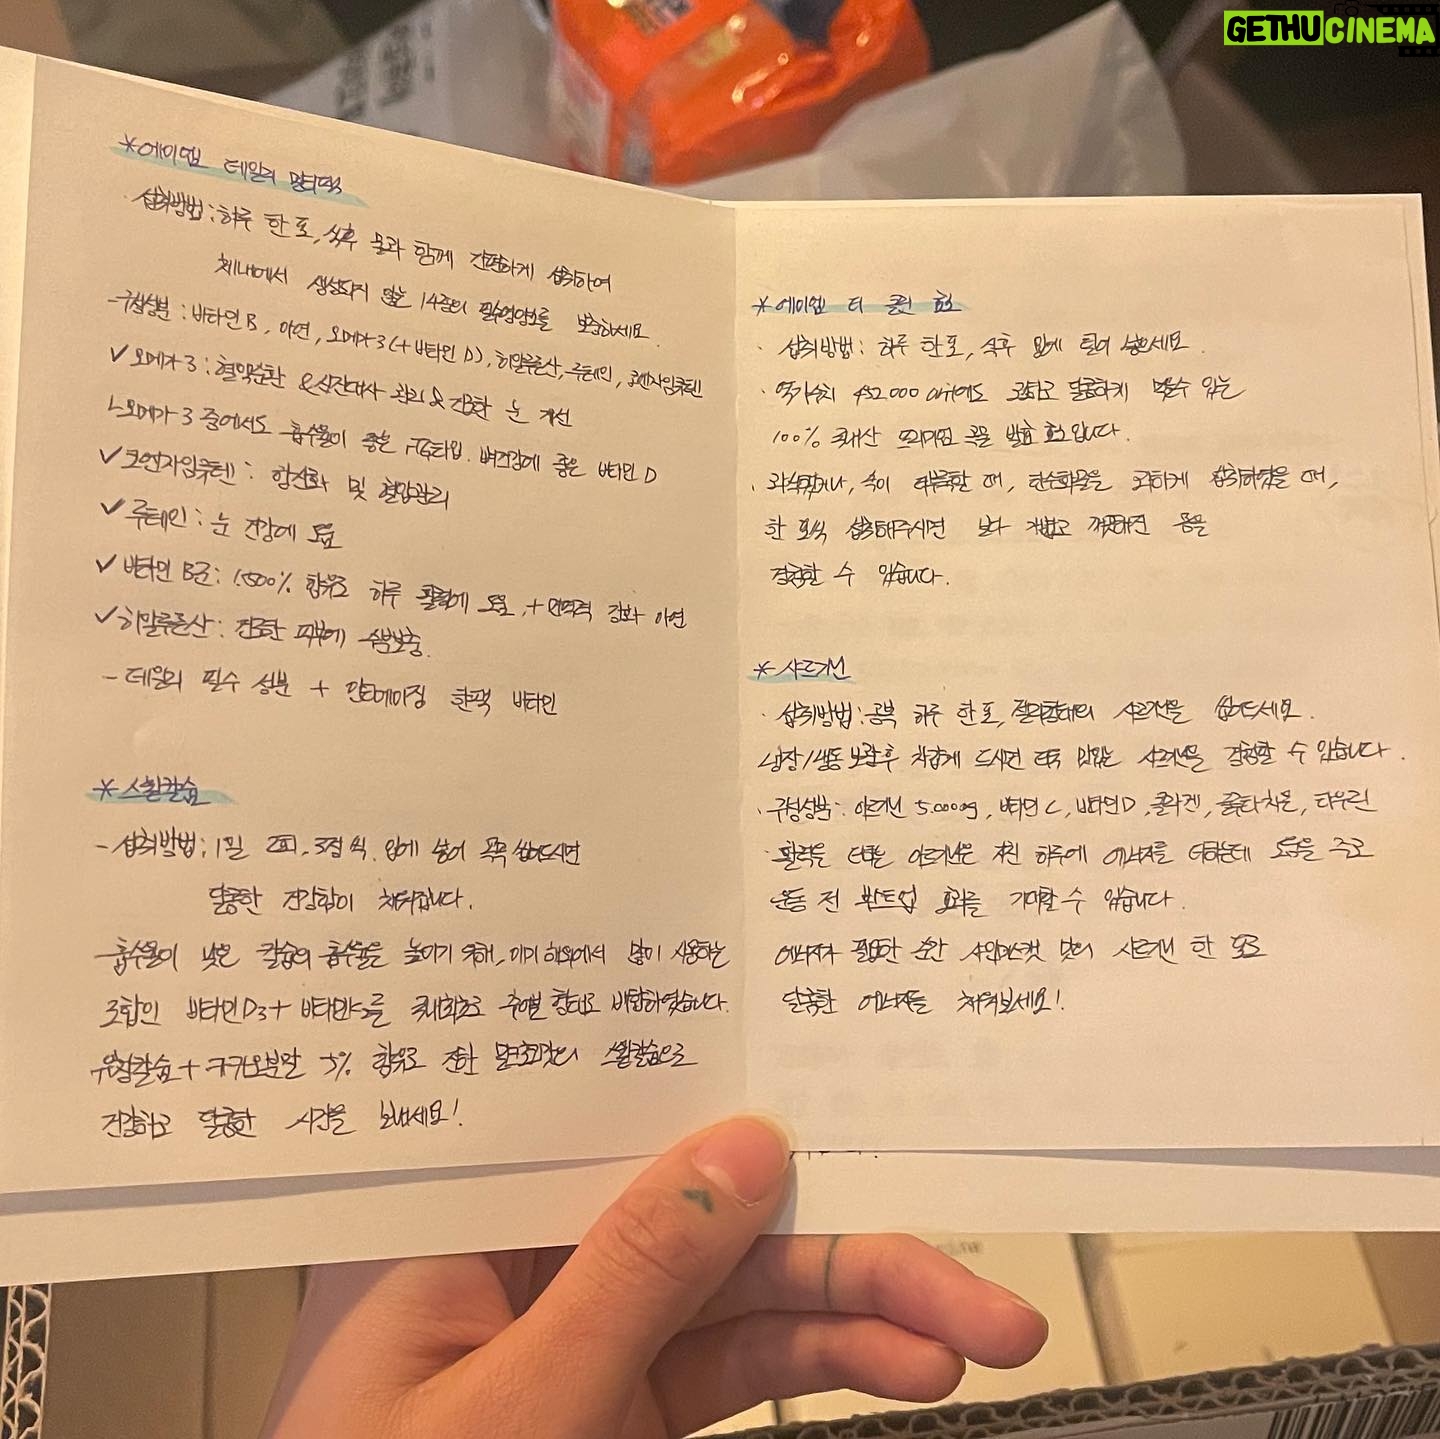 GETHUCINEMA
*에이엠 데일리 멀티팩
· 섭취방법 : 하루 한 포, 식후 물과 함께 간편하게 섭취하여
체내에서 생성되지 않는 14종의 필수영양소를 보충하세요.
-구성성분 : 비타민B, 아연, 오메가3(+비타민D), 히알루론산, 루테인, 코엔자임큐텐
✓오메가3 : 혈액순환 & 신진대사 관리 & 건조한 눈 개선
ㄴ오메가3 중에서도 흡수율이 좋은 rTG타입. 뼈건강에 좋은 비타민D
✓코엔자임큐텐 : 항산화 및 혈압관리
✓루테인 : 눈 건강에 도움
✓비타민 B군 : 1.500% 함유로 하루 활력에 도움, + 면역력 강화 아연
✓히알루론산 : 건조한 피부에 수분보충.
- 데일리 필수 성분 + 안티에이징 한팩 비타민
*스윗칼슘
- 섭취방법 : 1일 2회, 3정 씩, 입에 넣어 꼭꼭 씹어드시면
달콤한 건강함이 채워집니다.
흡수율이 낮은 칼슘의 흡수율을 높이기 위해, 이미 해외에서 많이 사용하는
조합인 비타민D3+비타민K2를 국내최초로 츄어블 형태로 배합하였습니다.
유청칼슘+카카오분말 5% 함유로 진한 밀크초코맛의 스윗칼슘으로
건강하고 달콤한 시간을 보내세요!
*에이엠 더 클린 효소
· 섭취방법 : 하루 한 포, 식후 입에 털어 넣으세요.
· 역가수치 452.000 에도 고소하고 달콤하게 먹을수 있는
100% 국내산 프리미엄 곡물 발효 효소입니다.
· 과식했거나, 속이 더부룩할 때, 탄수화물을 과하게 섭취하였을 때,
한 포씩 섭취해주시면 보다 가볍고 깨끗해진 몸을
경험할 수 있습니다.
*샤르기닌
· 섭취방법 : 공복 하루 한 포, 젤리형태의 샤르기닌을 씹어드세요.
냉장/냉동 보관후 차갑게 드시면 더욱 맛있는 샤르기닌을 경험할 수 있습니다.
· 구성성분 : 아르기닌 5.000mg, 비타민C, 비타민D, 콜라겐, 글루타치온, 타우린
· 활력을 더하는 아르기닌은 지친 하루에 에너지를 더하는데 도움을 주고
운동 전 부스트업 효과를 기대할 수 있습니다.
에너지가 필요한 순간 샤인머스캣 맛의 샤르기닌 한 포로
달콤한 에너지를 채워보세요!